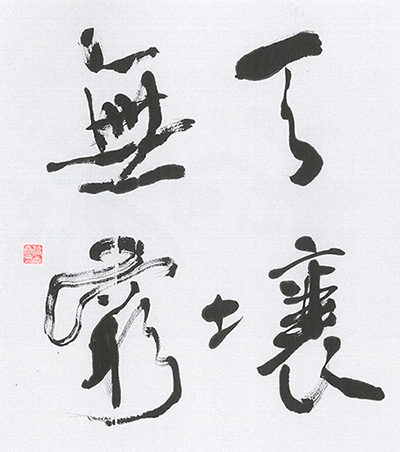 天壌
無窮